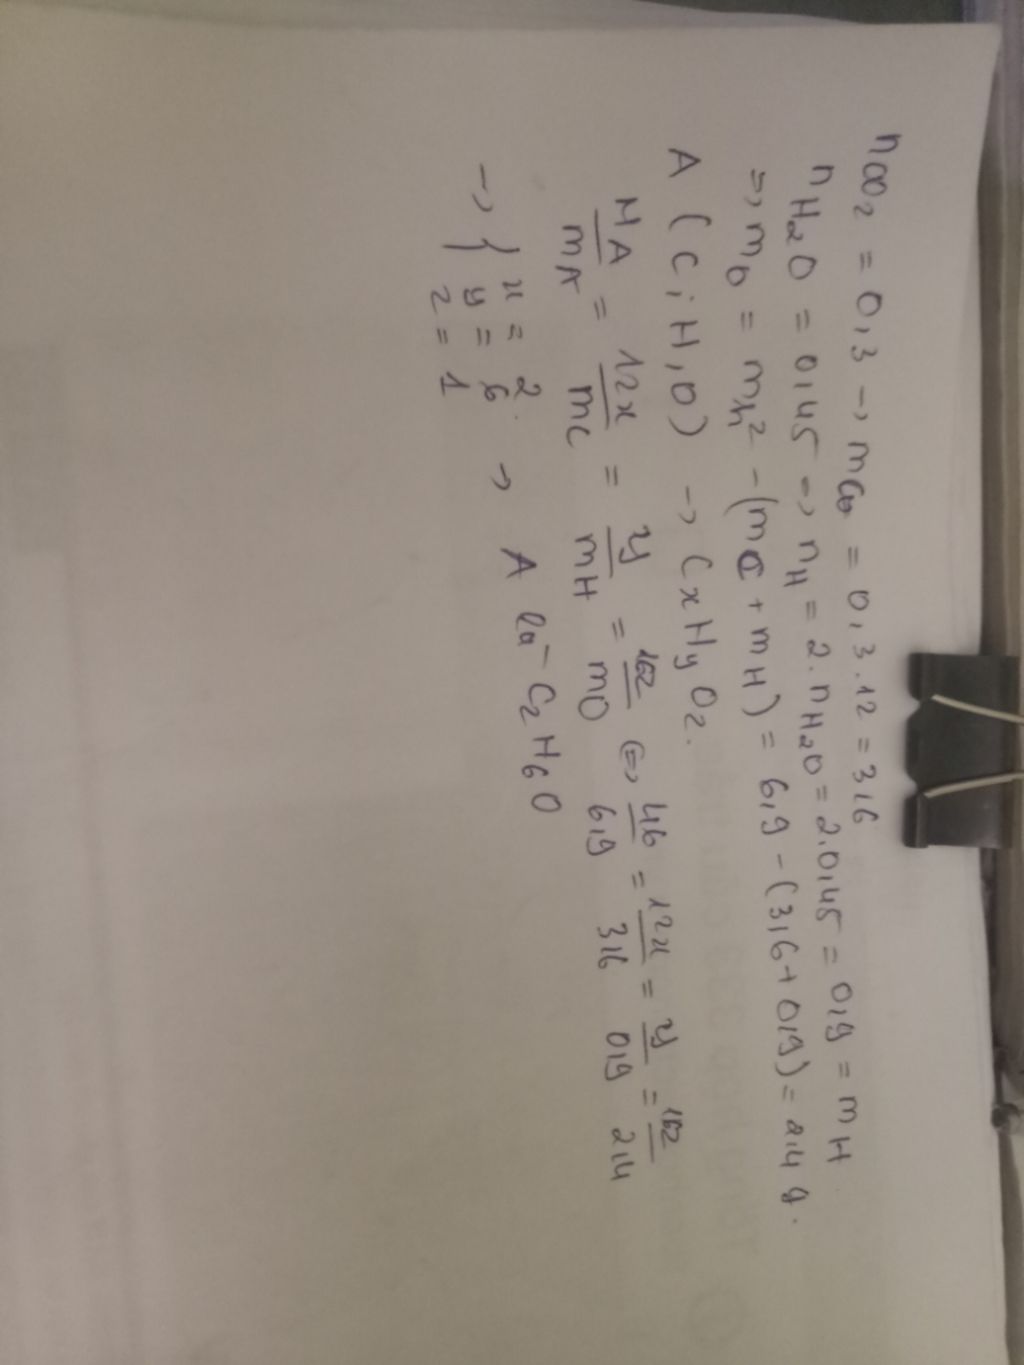 nCO2 = 0,3 → mC = 0,3.12 = 3,6
nH2O = 0,45 → nH = 2.nH2O = 2.0,45 = 0,9 = mH
=> mO = mh² - (mC + mH) = 6,9 - (3,6 + 0,9) = 2,4 g.
A (C, H, O) → CxHyOz.
MA/mA = 12x/mC = y/mH = 16z/mO <=> 46/6,9 = 12x/3,6 = y/0,9 = 16z/2,4
→ { x = 2. y = 6 z = 1 → A là C2H6O